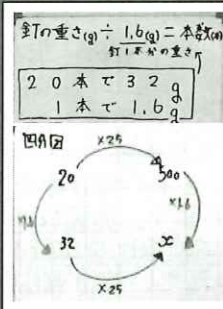 釘の重さ(g) ÷ 1.6(g) = 本数(本)
釘1本分の重さ
20本で32g
1本で1.6g
四分図
×25
20
500
×1.6
×1.6
32
x
×25